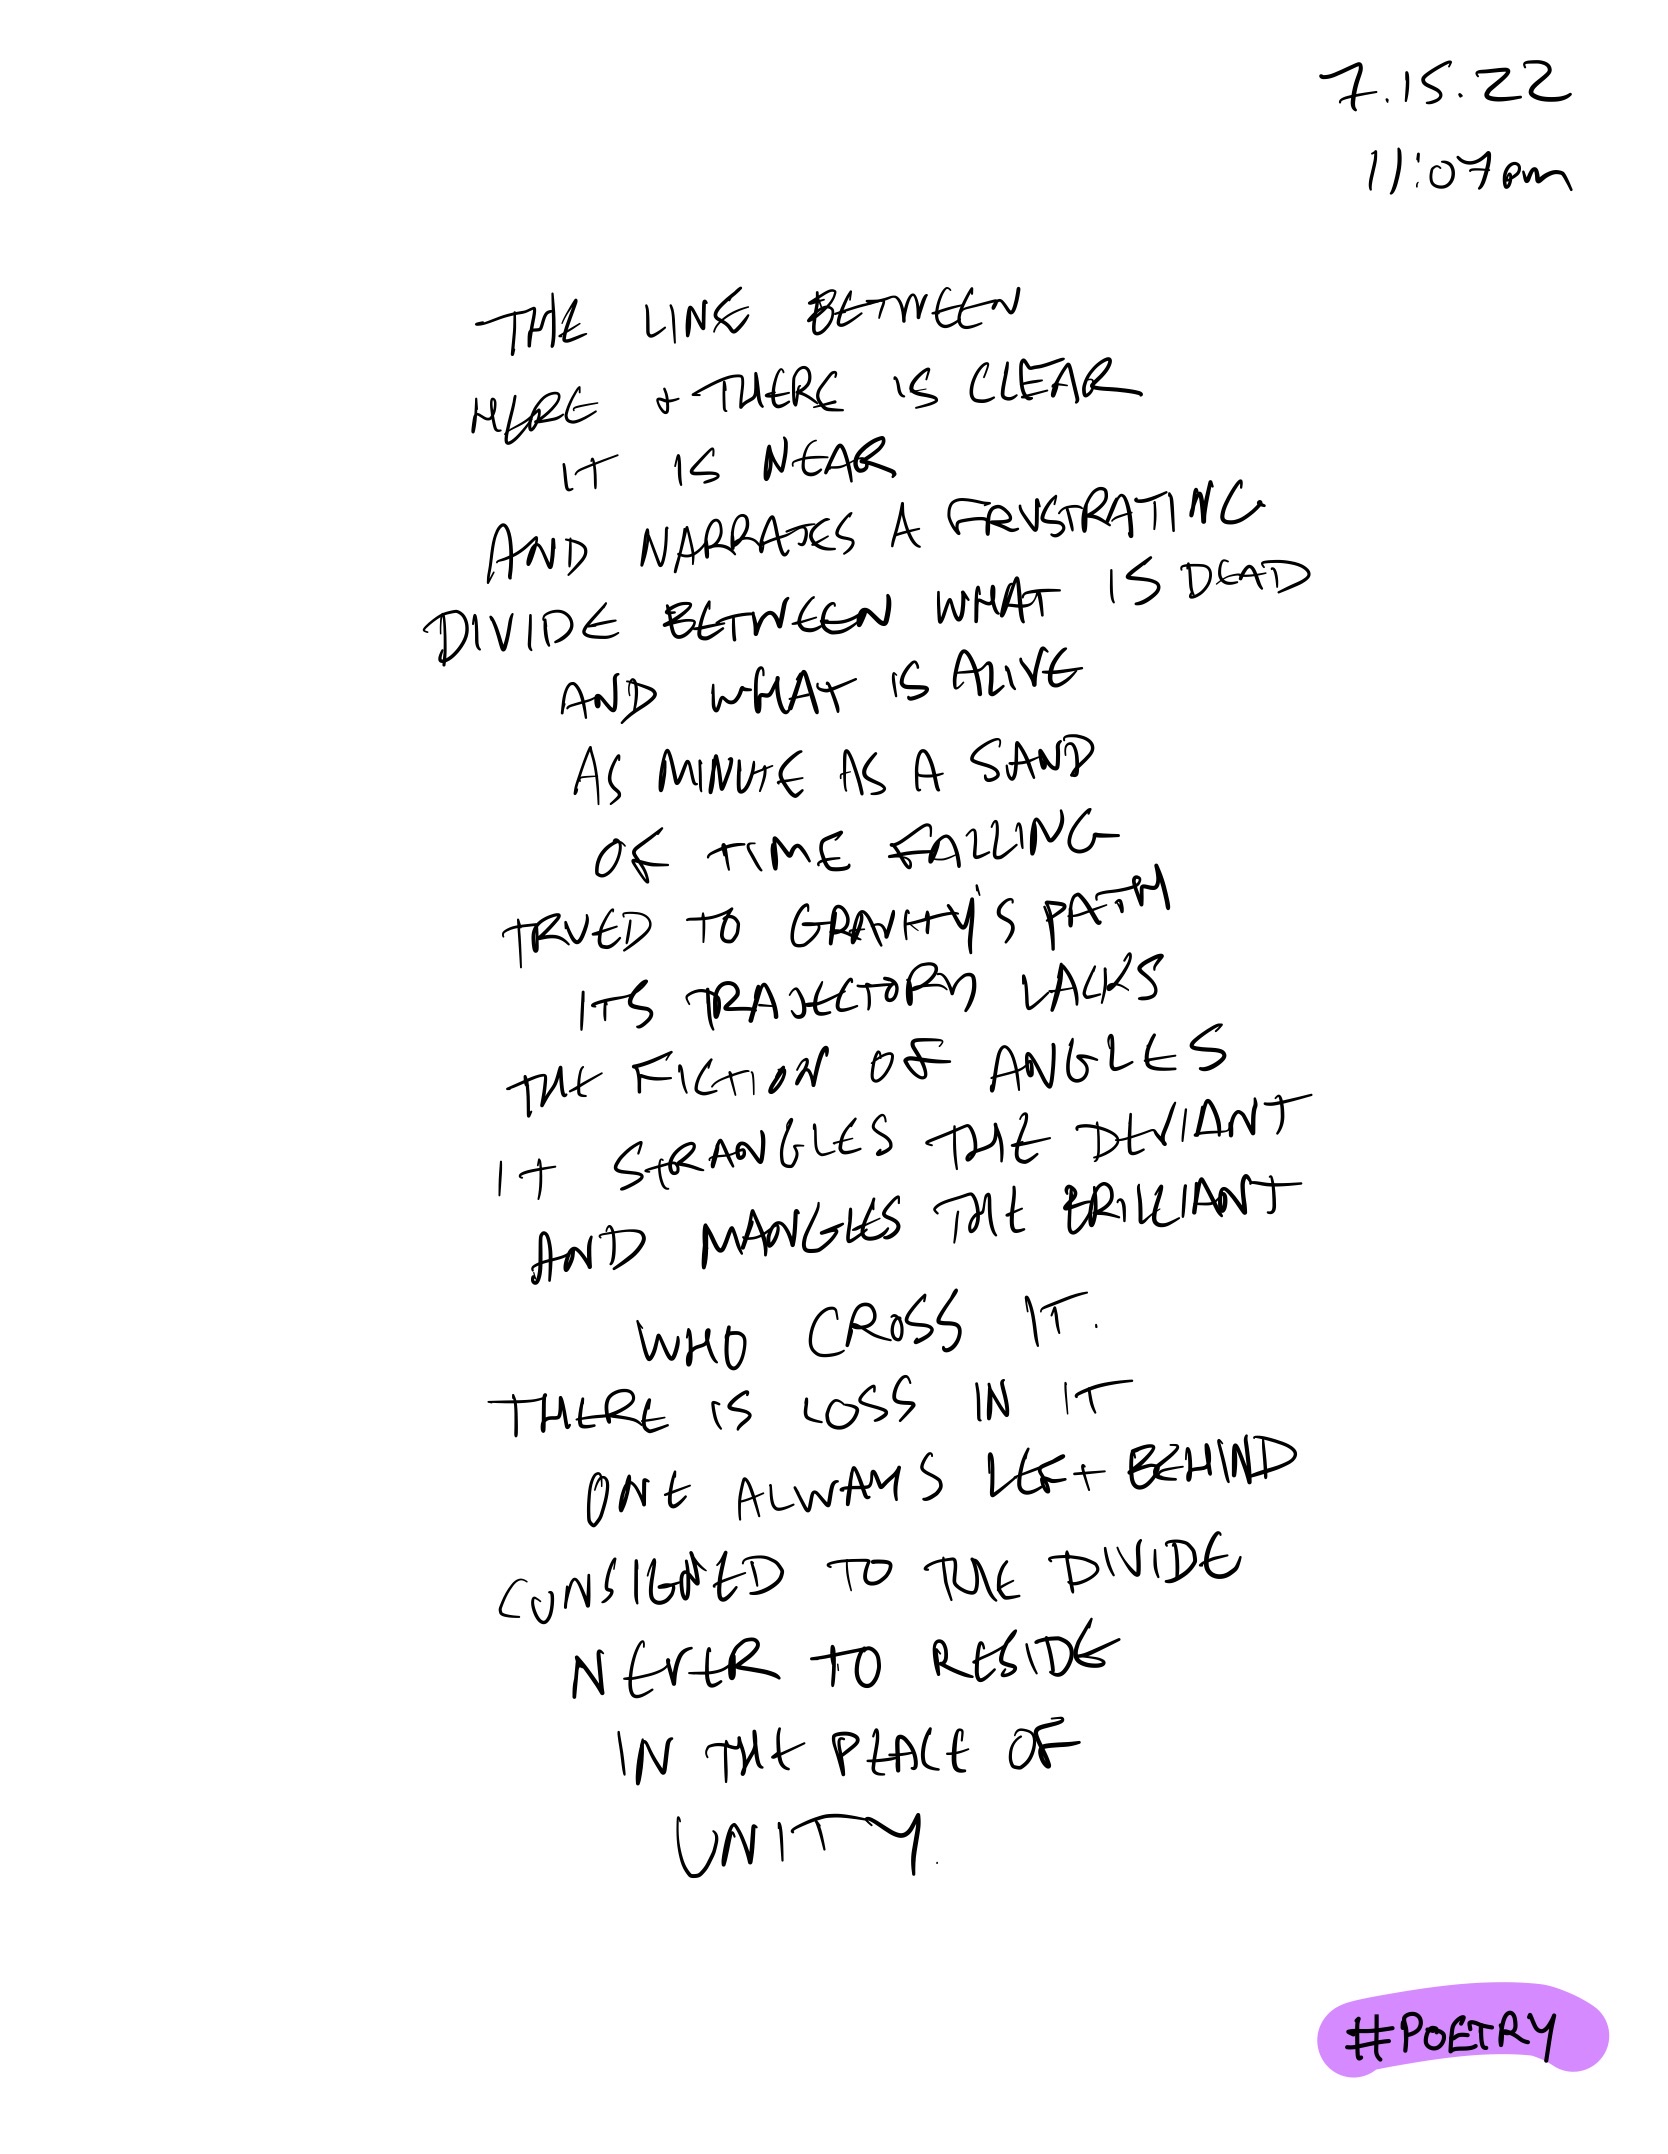 7.15.22
11:07pm
THE LINE BETWEEN
HERE + THERE IS CLEAR
IT IS NEAR
AND NARRATES A FRUSTRATING
DIVIDE BETWEEN WHAT IS DEAD
AND WHAT IS ALIVE
AS MINUTE AS A SAND
OF TIME FALLING
TRUED TO GRAVITY'S PATH
ITS TRAJECTORY LACKS
THE FICTION OF ANGLES
IT STRANGLES THE DEVIANT
AND MANGLES THE BRILLIANT
WHO CROSS IT.
THERE IS LOSS IN IT
ONE ALWAYS LEFT BEHIND
CONSIGNED TO THE DIVIDE
NEVER TO RESIDE
IN THE PLACE OF
UNITY.
#POETRY